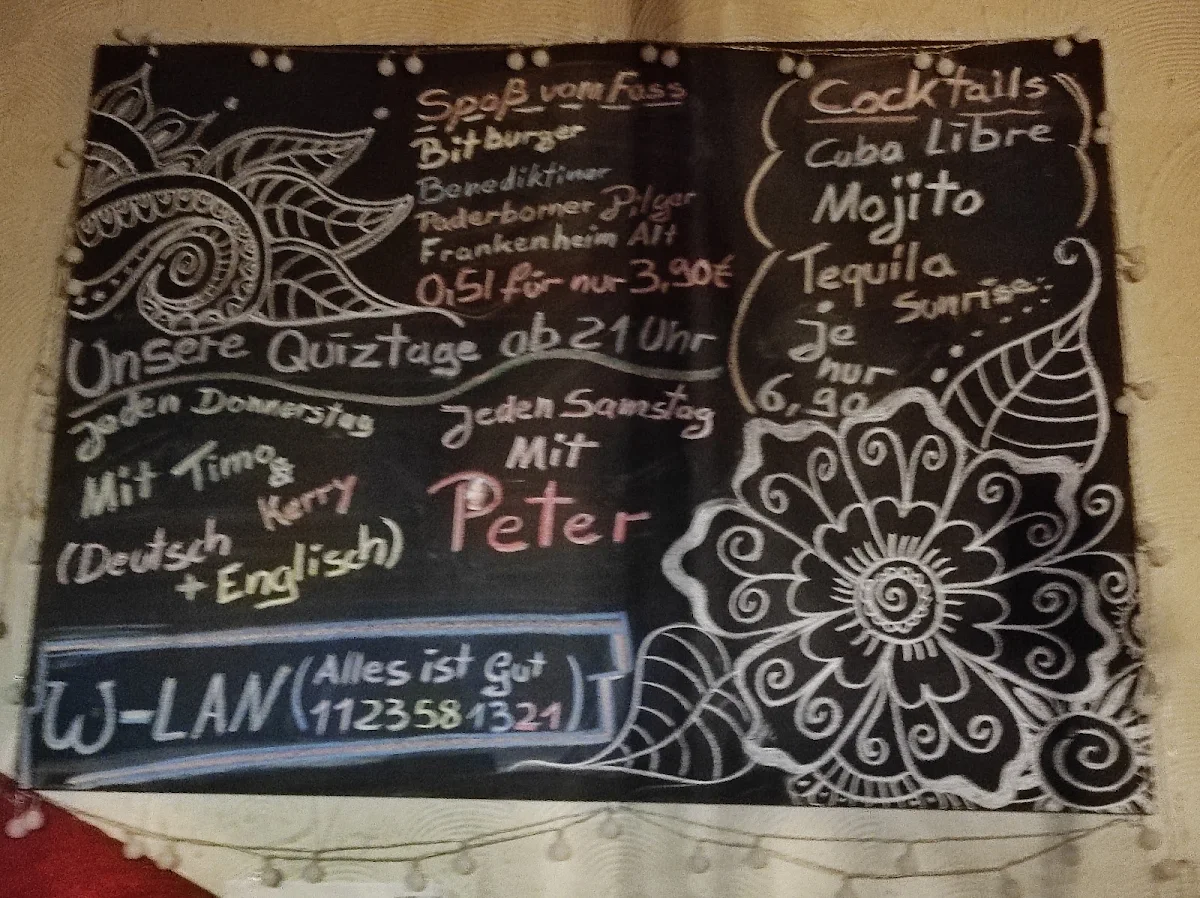 Spaß vom Fass
Bitburger
Benediktiner
Paderborner Pilger
Frankenheim Alt
0,5l für nur 3,90€
Cocktails
Cuba Libre
Mojito
Tequila
Sunrise
je
nur
6,90
Unsere Quiztage ab 21 Uhr
Jeden Donnerstag
Mit Timo &
Kerry
(Deutsch
+ Englisch)
Jeden Samstag
Mit
Peter
W-LAN (Alles ist Gut
1123581321)